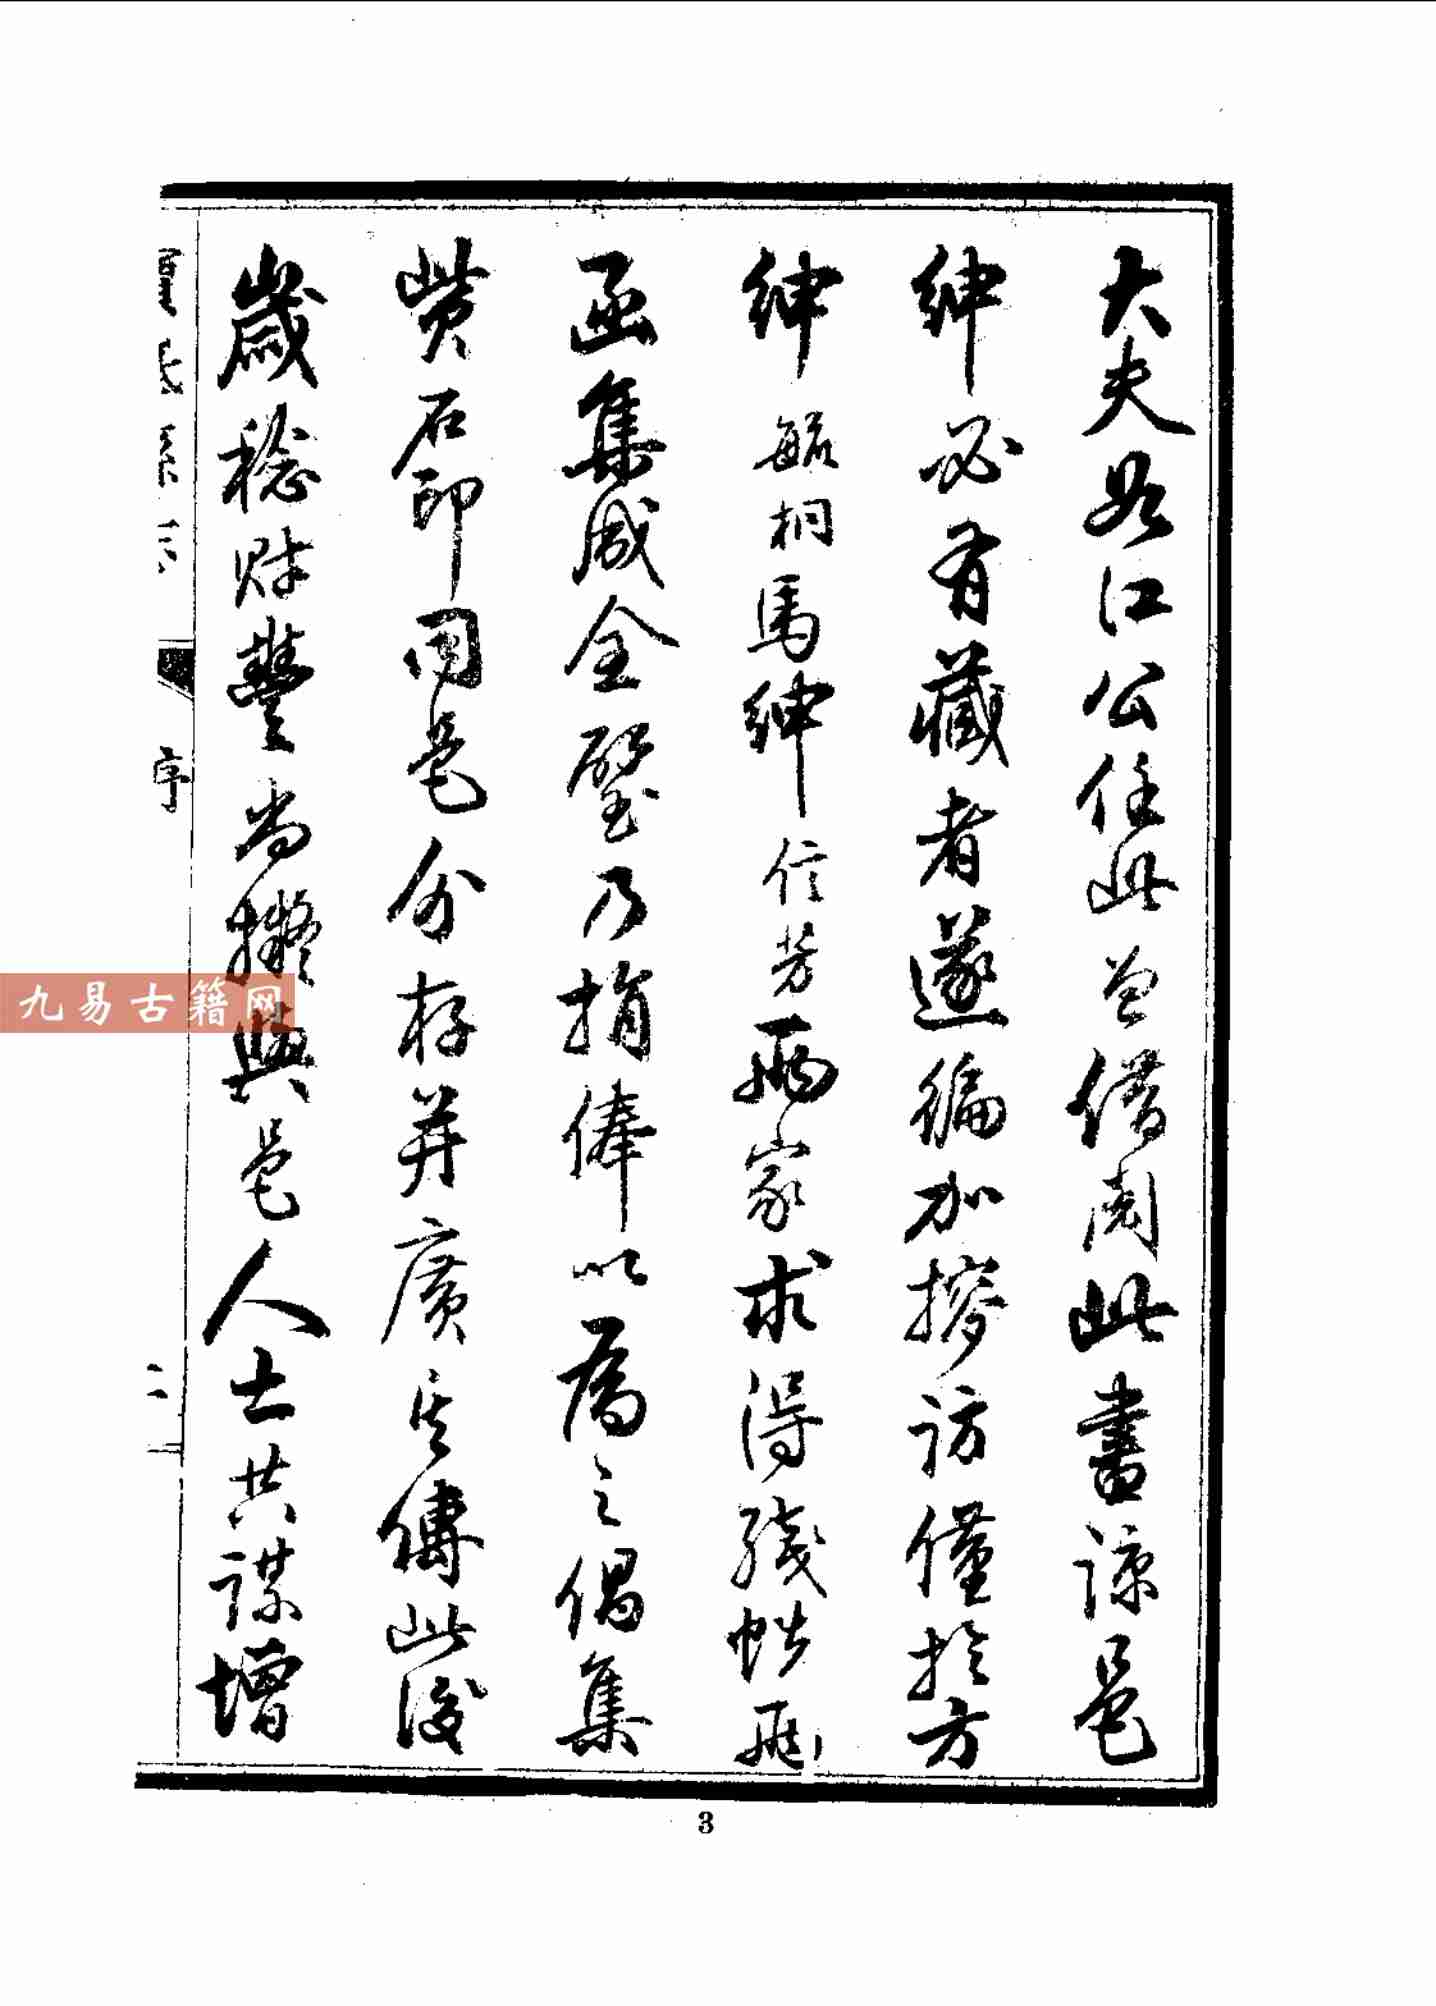 大夫公江公任此曾借閱此書諒邑
紳必有藏者遂徧加搜訪僅於方
紳毓桐馬紳信芳兩家求得殘帙飛
函集成全璧乃捐俸以為之倡集
貲石印同邑分存并廣其傳此後
歲稔財豐尚擬與邑人士共謀增
序
二
3
九易古籍网